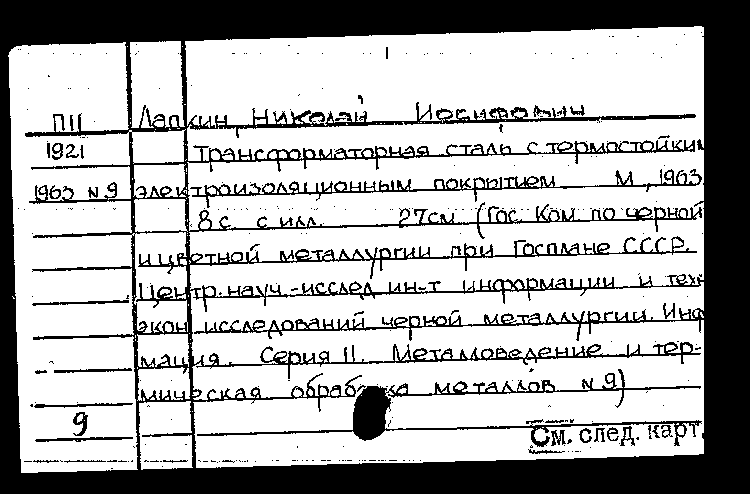 П11 Лапкин, Николай Иосифович
1921 Трансформаторная сталь с термостойким
1963 №9 электроизоляционным покрытием М., 1963
8 с. с илл. 27 см. (Гос. Ком. по черной
и цветной металлургии при Госплане СССР.
Центр. науч.-исслед. ин-т информации и техн
экон исследований черной металлургии. Инф
мация. Серия 11. Металловедение и тер-
мическая обработка металлов №9)
9
См. след. карт.